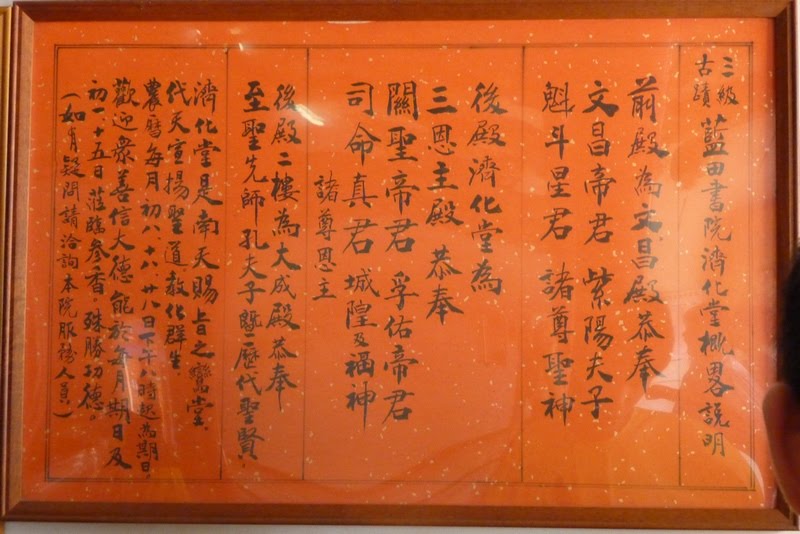 三級古蹟 藍田書院濟化堂概畧說明
前殿為文昌殿恭奉
文昌帝君 紫陽夫子
魁斗星君 諸尊聖神
後殿濟化堂為
三恩主殿 恭奉
關聖帝君 孚佑帝君
司命真君 城隍及福神
諸尊恩主
後殿二樓為大成殿恭奉
至聖先師孔夫子暨歷代聖賢.
濟化堂是南天賜旨之鸞堂.
代天宣揚聖道教化群生
農曆每月初八.十八.廿八日下午八時起為期日.
歡迎眾善信大德能於每月期日及
初一.十五日蒞臨參香.殊勝功德。
(如有疑問請洽詢本院服務人員.)